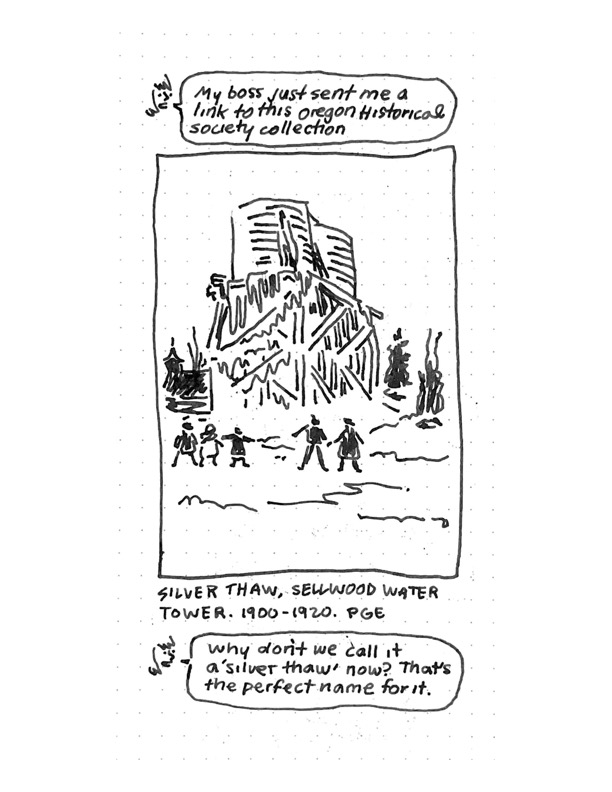 My boss just sent me a
link to this Oregon Historical
society collection
SILVER THAW, SELLWOOD WATER
TOWER. 1900-1920. PGE
Why don't we call it
a 'silver thaw' now? That's
the perfect name for it.